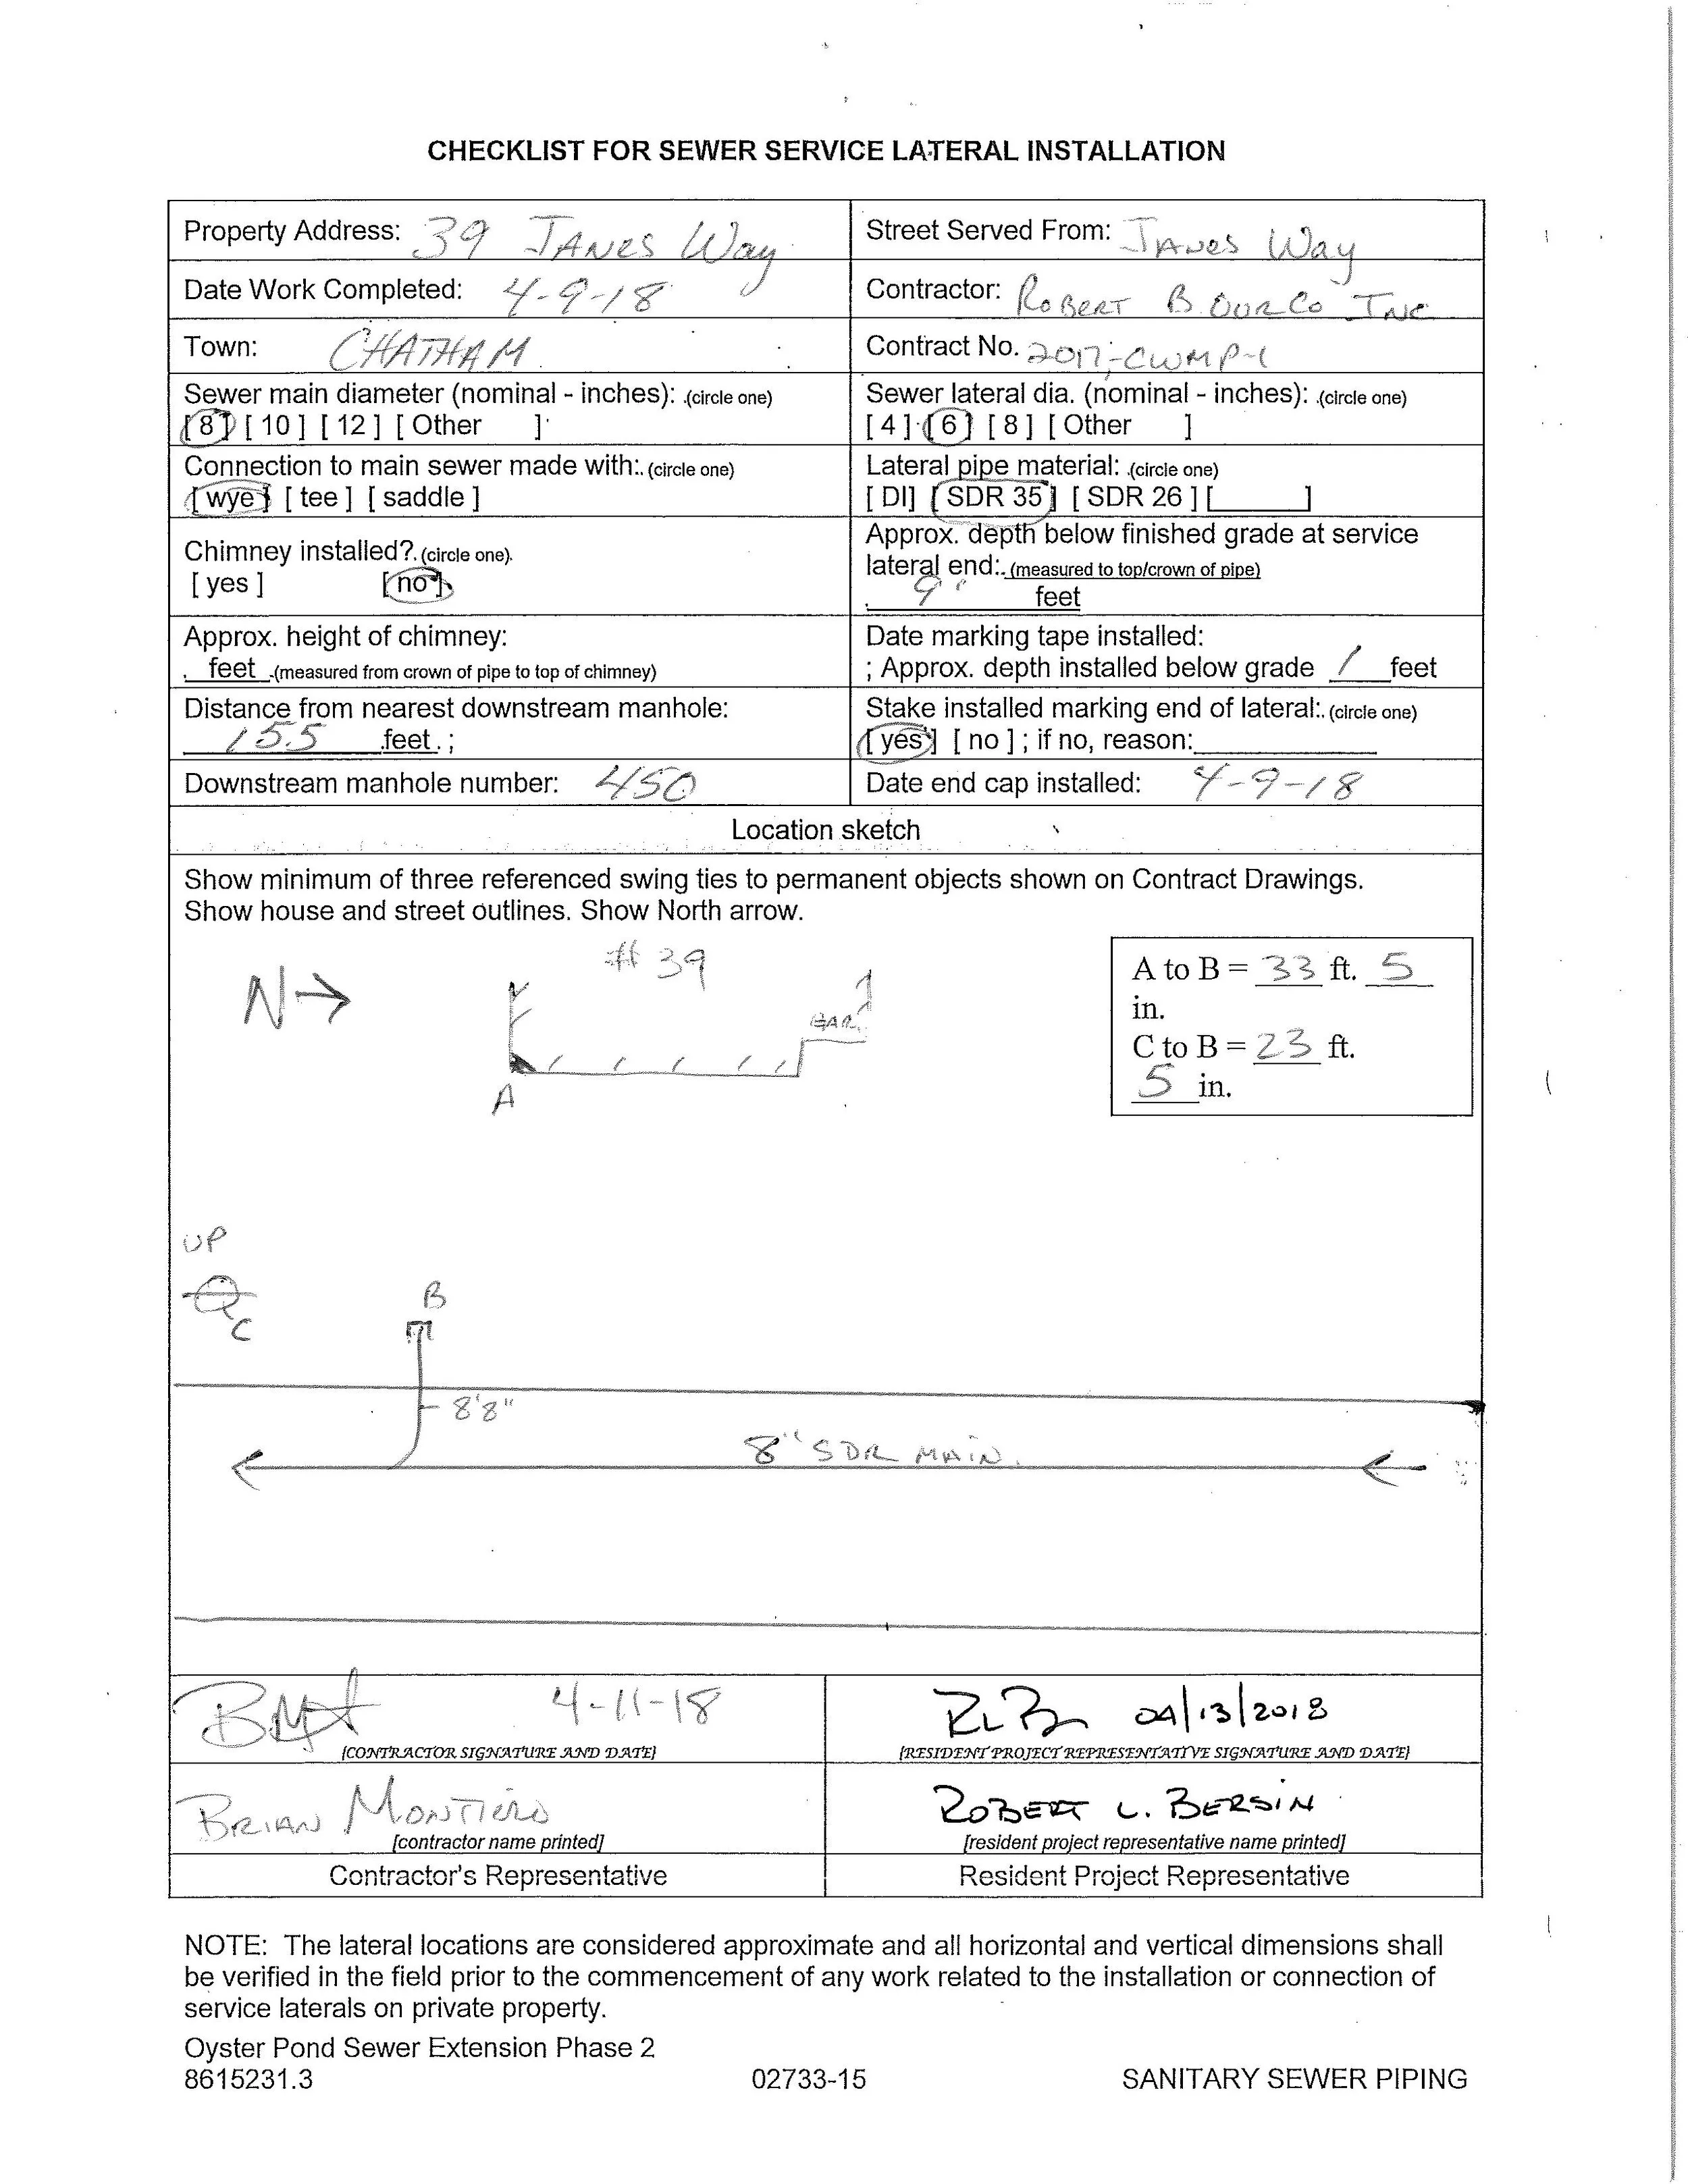 CHECKLIST FOR SEWER SERVICE LATERAL INSTALLATION
Property Address: 39 JANES Way
Street Served From: JANES Way
Date Work Completed: 4-9-18
Contractor: ROBERT B. OUR CO INC
Town: CHATHAM
Contract No. 2017-CWMP-1
Sewer main diameter (nominal - inches): (circle one)
[8] [ 10 ] [ 12 ] [ Other ]
Sewer lateral dia. (nominal - inches): (circle one)
[ 4 ] [ 6 ] [ 8 ] [ Other ]
Connection to main sewer made with: (circle one)
[ wye ] [ tee ] [ saddle ]
Lateral pipe material: (circle one)
[ DI] [ SDR 35 ] [ SDR 26 ] [ ]
Chimney installed? (circle one)
[ yes ] [ no ]
Approx. depth below finished grade at service
lateral end: (measured to top/crown of pipe)
9' feet
Approx. height of chimney:
feet (measured from crown of pipe to top of chimney)
Date marking tape installed:
; Approx. depth installed below grade 1 feet
Distance from nearest downstream manhole:
155 feet ;
Stake installed marking end of lateral: (circle one)
[ yes ] [ no ] ; if no, reason:
Downstream manhole number: 450
Date end cap installed: 4-9-18
Location sketch
Show minimum of three referenced swing ties to permanent objects shown on Contract Drawings.
Show house and street outlines. Show North arrow.
# 39
N
GAR.
A
A to B = 33 ft. 5
in.
C to B = 23 ft.
5 in.
UP
C
B
8'8"
8" SDR MAIN
4-11-18
04/13/2018
[CONTRACTOR SIGNATURE AND DATE]
[RESIDENT PROJECT REPRESENTATIVE SIGNATURE AND DATE]
BRIAN MONTIERO
ROBERT L. BERSIN
[contractor name printed]
[resident project representative name printed]
Contractor's Representative
Resident Project Representative
NOTE: The lateral locations are considered approximate and all horizontal and vertical dimensions shall
be verified in the field prior to the commencement of any work related to the installation or connection of
service laterals on private property.
Oyster Pond Sewer Extension Phase 2
8615231.3
02733-15
SANITARY SEWER PIPING